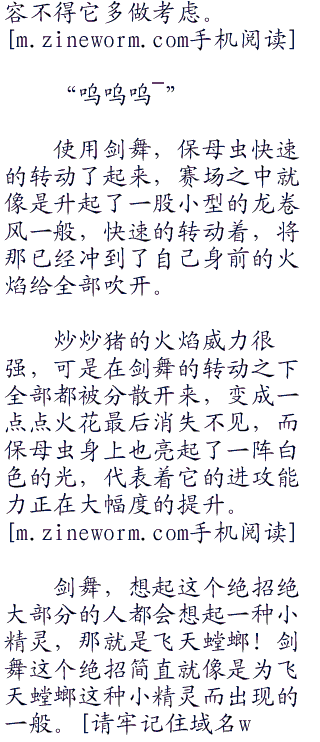 容不得它多做考虑。
[m.zineworm.com手机阅读]
“呜呜呜¯”
使用剑舞，保母虫快速
的转动了起来，赛场之中就
像是升起了一股小型的龙卷
风一般，快速的转动着，将
那已经冲到了自己身前的火
焰给全部吹开。
炒炒猪的火焰威力很
强，可是在剑舞的转动之下
全部都被分散开来，变成一
点点火花最后消失不见，而
保母虫身上也亮起了一阵白
色的光，代表着它的进攻能
力正在大幅度的提升。
[m.zineworm.com手机阅读]
剑舞，想起这个绝招绝
大部分的人都会想起一种小
精灵，那就是飞天螳螂！剑
舞这个绝招简直就像是为飞
天螳螂这种小精灵而出现的
一般。[请牢记住域名w